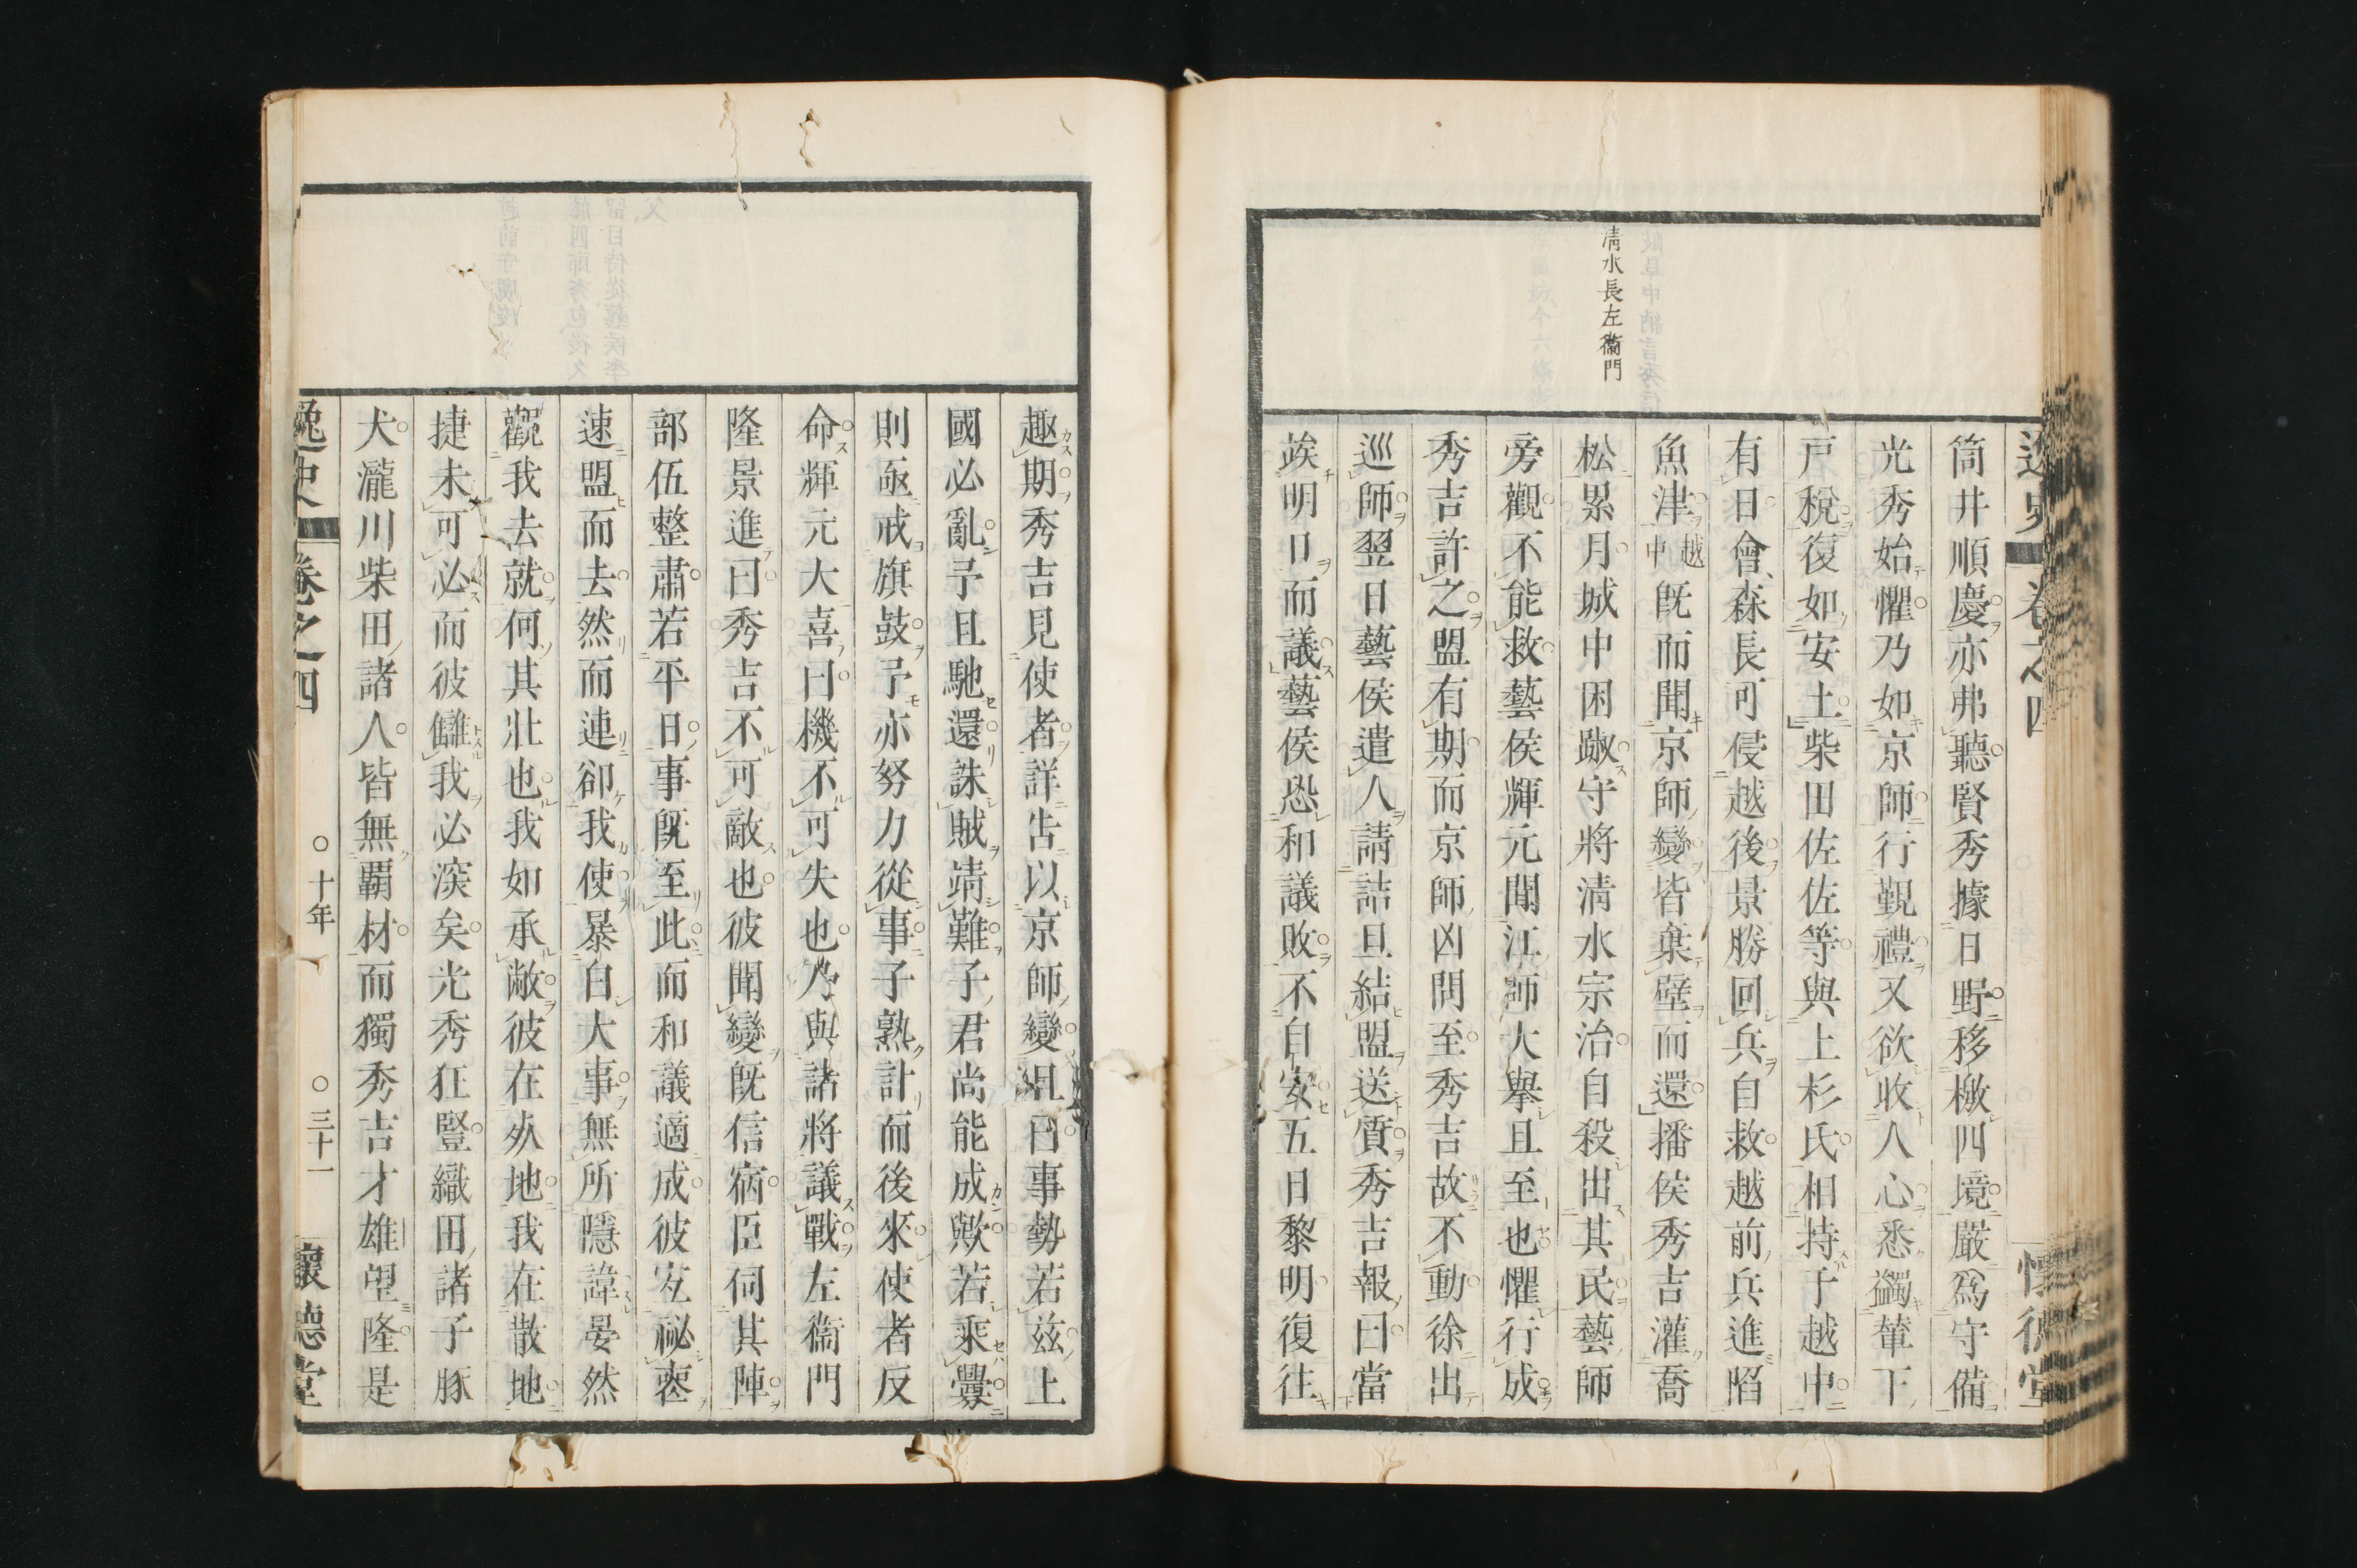 清水長左衞門
筒井順慶亦弗聽賢秀據日野移檄四境嚴爲守備
光秀始懼乃如京師行覲禮又欲收人心悉蠲輦下
戸稅復如安土柴田佐佐等與上杉氏相持于越中
有日會森長可侵越後景勝回兵自救越前兵進陷
魚津越中既而聞京師變皆棄壁而還播侯秀吉灌高
松累月城中困蹴守將清水宗治自殺出其民藝師
旁觀不能救藝侯輝元聞江師大擧且至也懼行成
秀吉許之盟有期而京師凶問至秀吉故不動徐出
巡師翌日藝侯遣人請詰旦結盟送質秀吉報曰當
竢明日而議藝侯恐和議敗不自安五日黎明復往
趣期秀吉見使者詳告以京師變且曰事勢若茲上
國必亂予且馳還誅賊靖難子君尚能成歟若乘釁
則亟戒旗鼓予亦努力從事子熟計而後來使者反
命輝元大喜曰機不可失也乃與諸將議戰左衞門
隆景進曰秀吉不可敵也彼聞變既信宿臣伺其陣
部伍整肅若平日事既至此而和議適成彼宐祕喪
速盟而去然而連卻我使暴白大事無所隱諱晏然
觀我去就何其壯也我如承敝彼在死地我在散地
捷未可必而彼讎我必深矣光秀狂豎織田諸子豚
犬瀧川柴田諸人皆無覇材而獨秀吉才雄望隆是
逸史 卷之四 ○十年 ○三十一 懷德堂